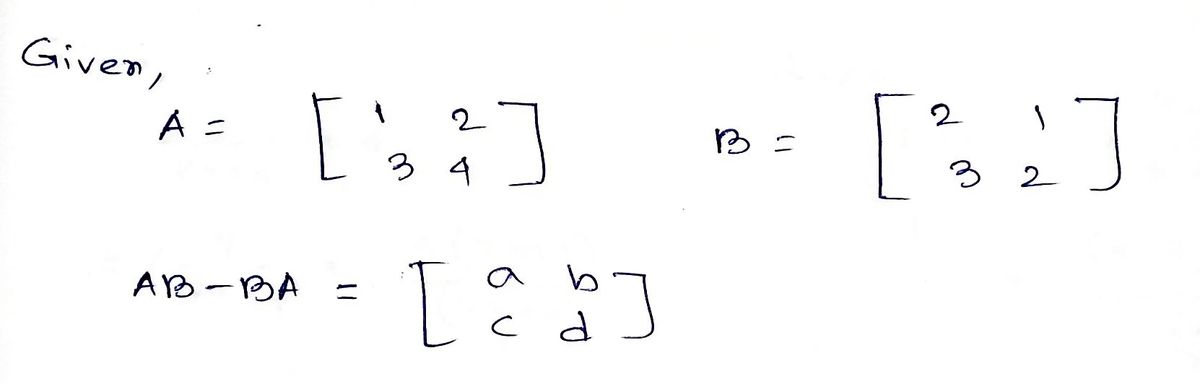 Given,
A = [ 1 2 B = [ 2 1
3 4 ] 3 2 ]
AB - BA = [ a b
c d ]